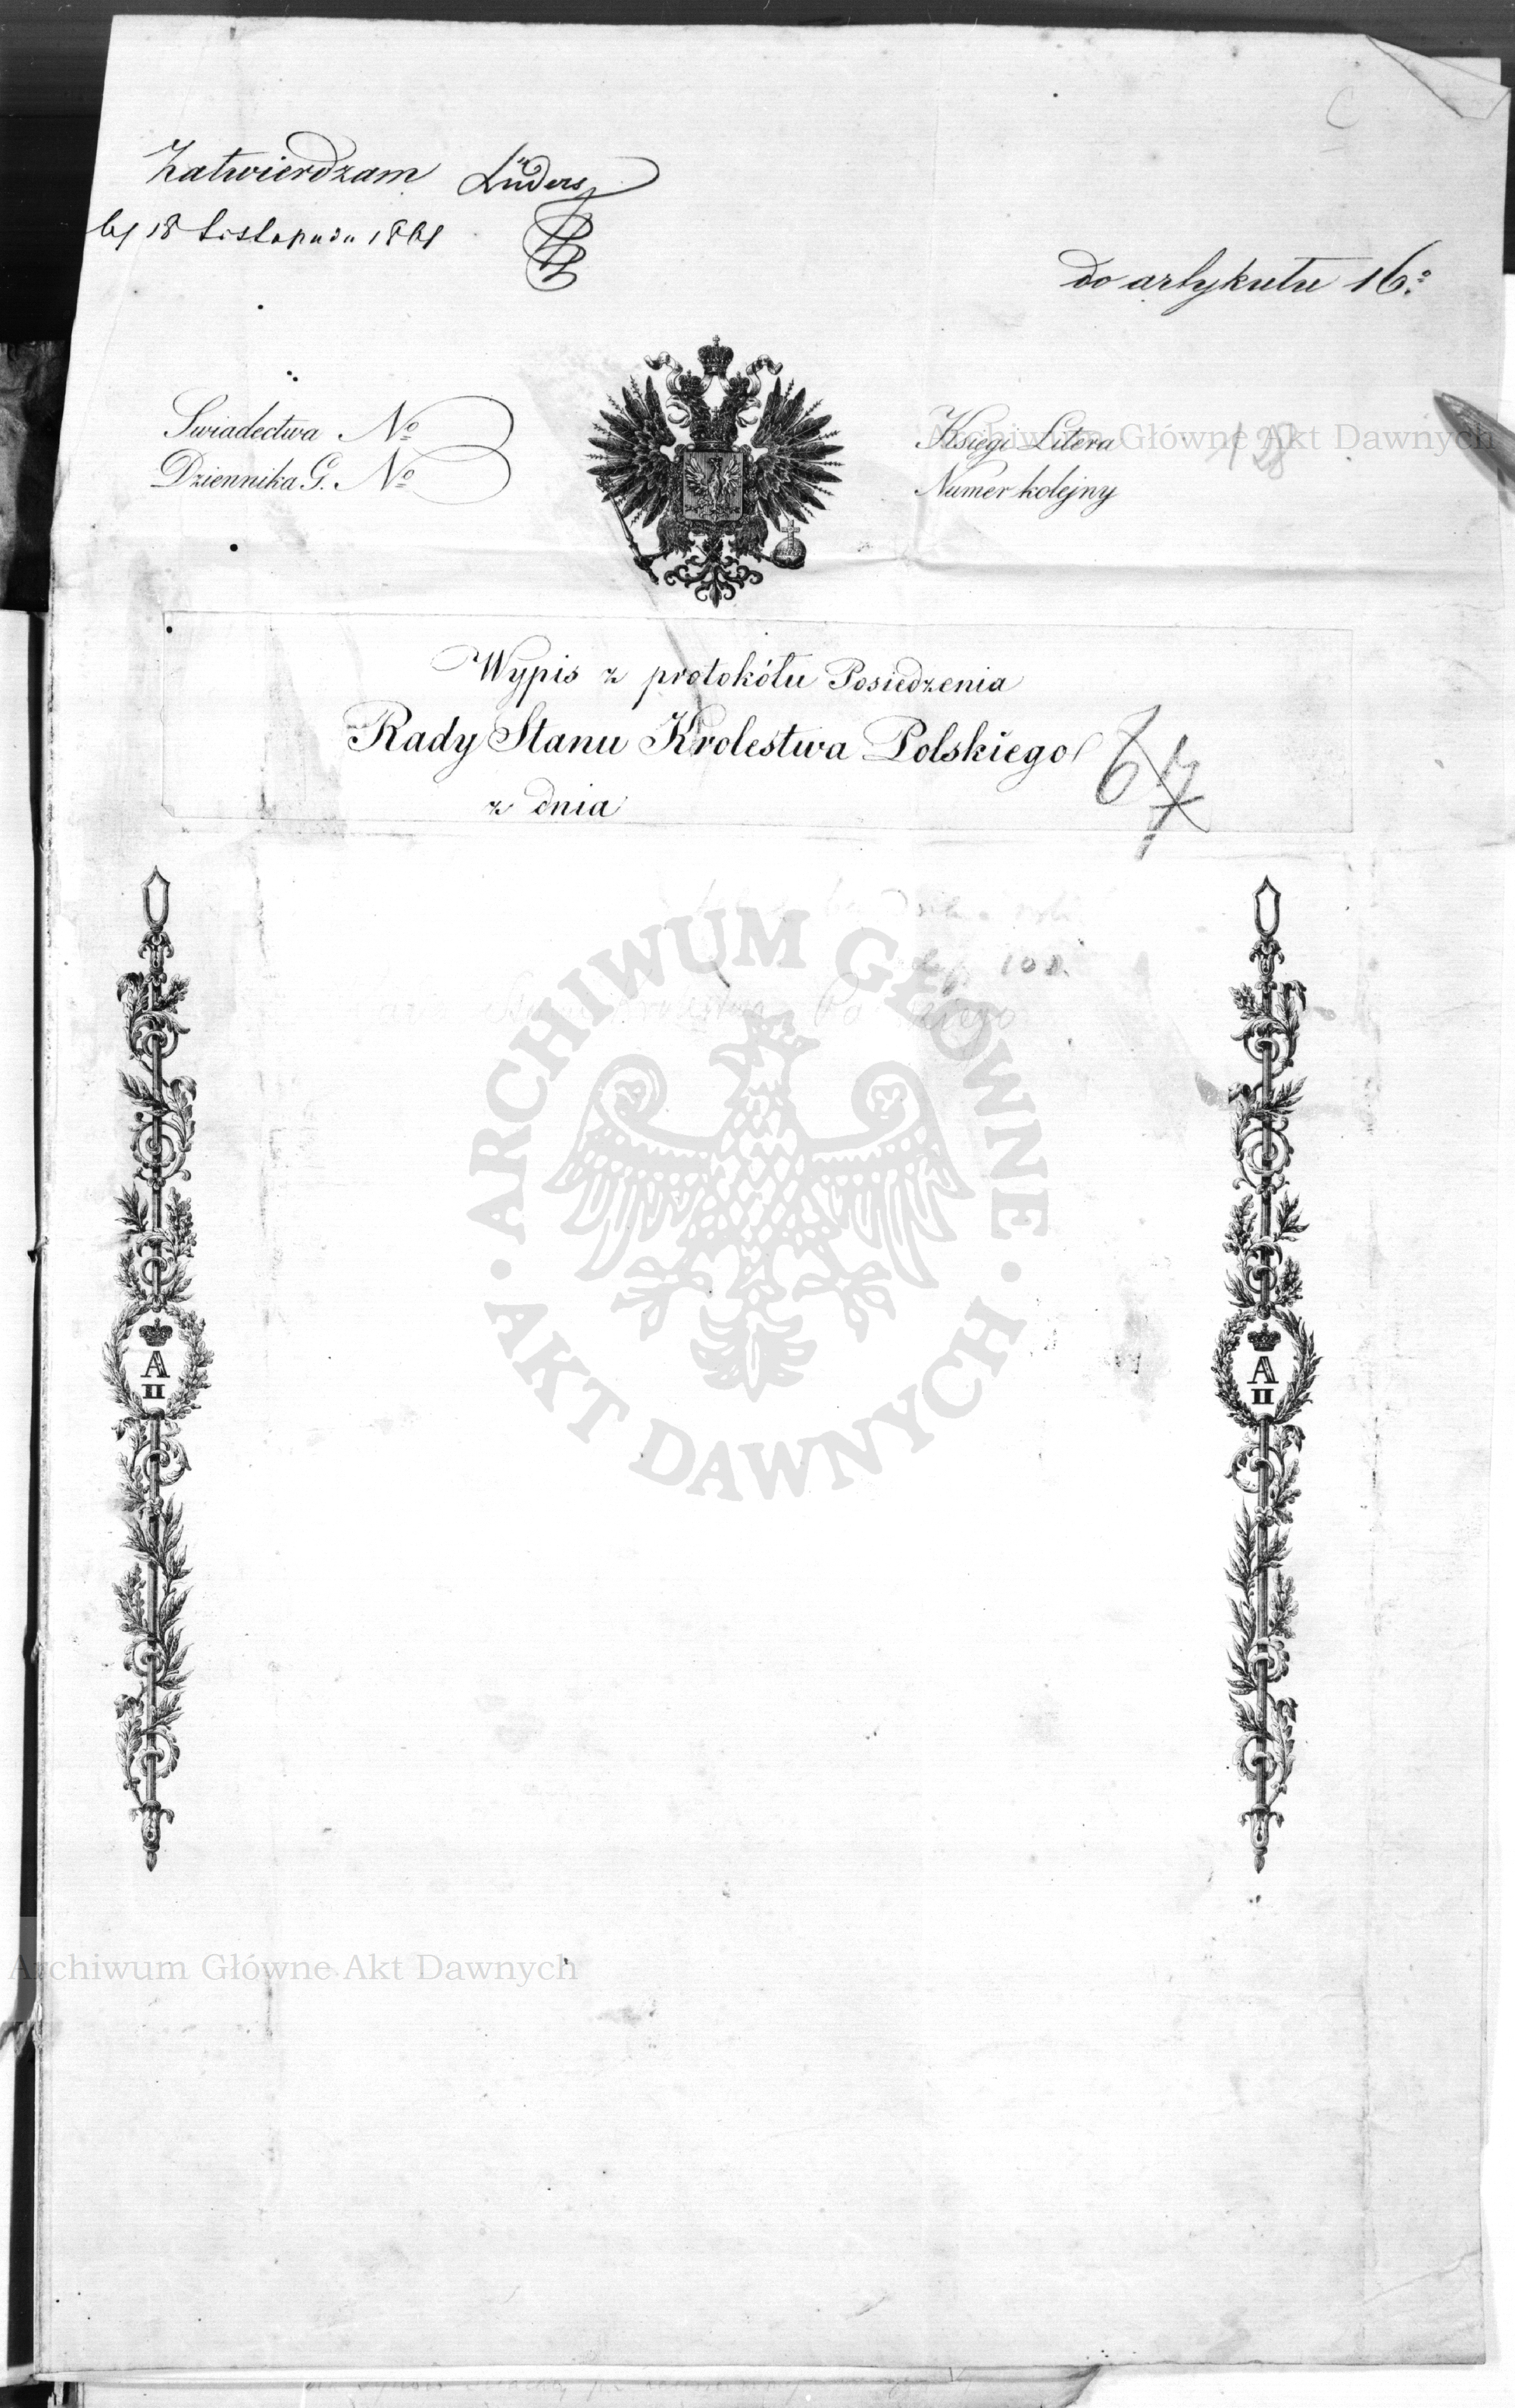 Zatwierdzam Lüders
18 Listopada 1861
do artykułu 16º
Swiadectwa Nº
Dziennika G. Nº
Księgi Litera
Numer kolejny
128
Archiwum Główne Akt Dawnych
Wypis z protokółu Posiedzenia
Rady Stanu Krolestwa Polskiego
z dnia
67
108.
ARCHIWUM GŁÓWNE · AKT DAWNYCH ·
A II
A II
Archiwum Główne Akt Dawnych